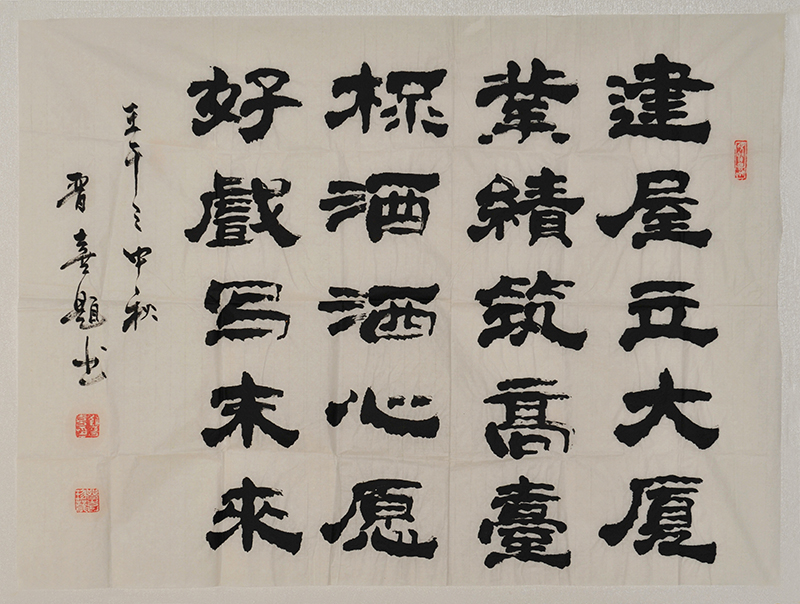 建屋立大厦
業績筑高臺
杯酒洒心愿
好戲写未來
壬午之中秋
晋喜題书